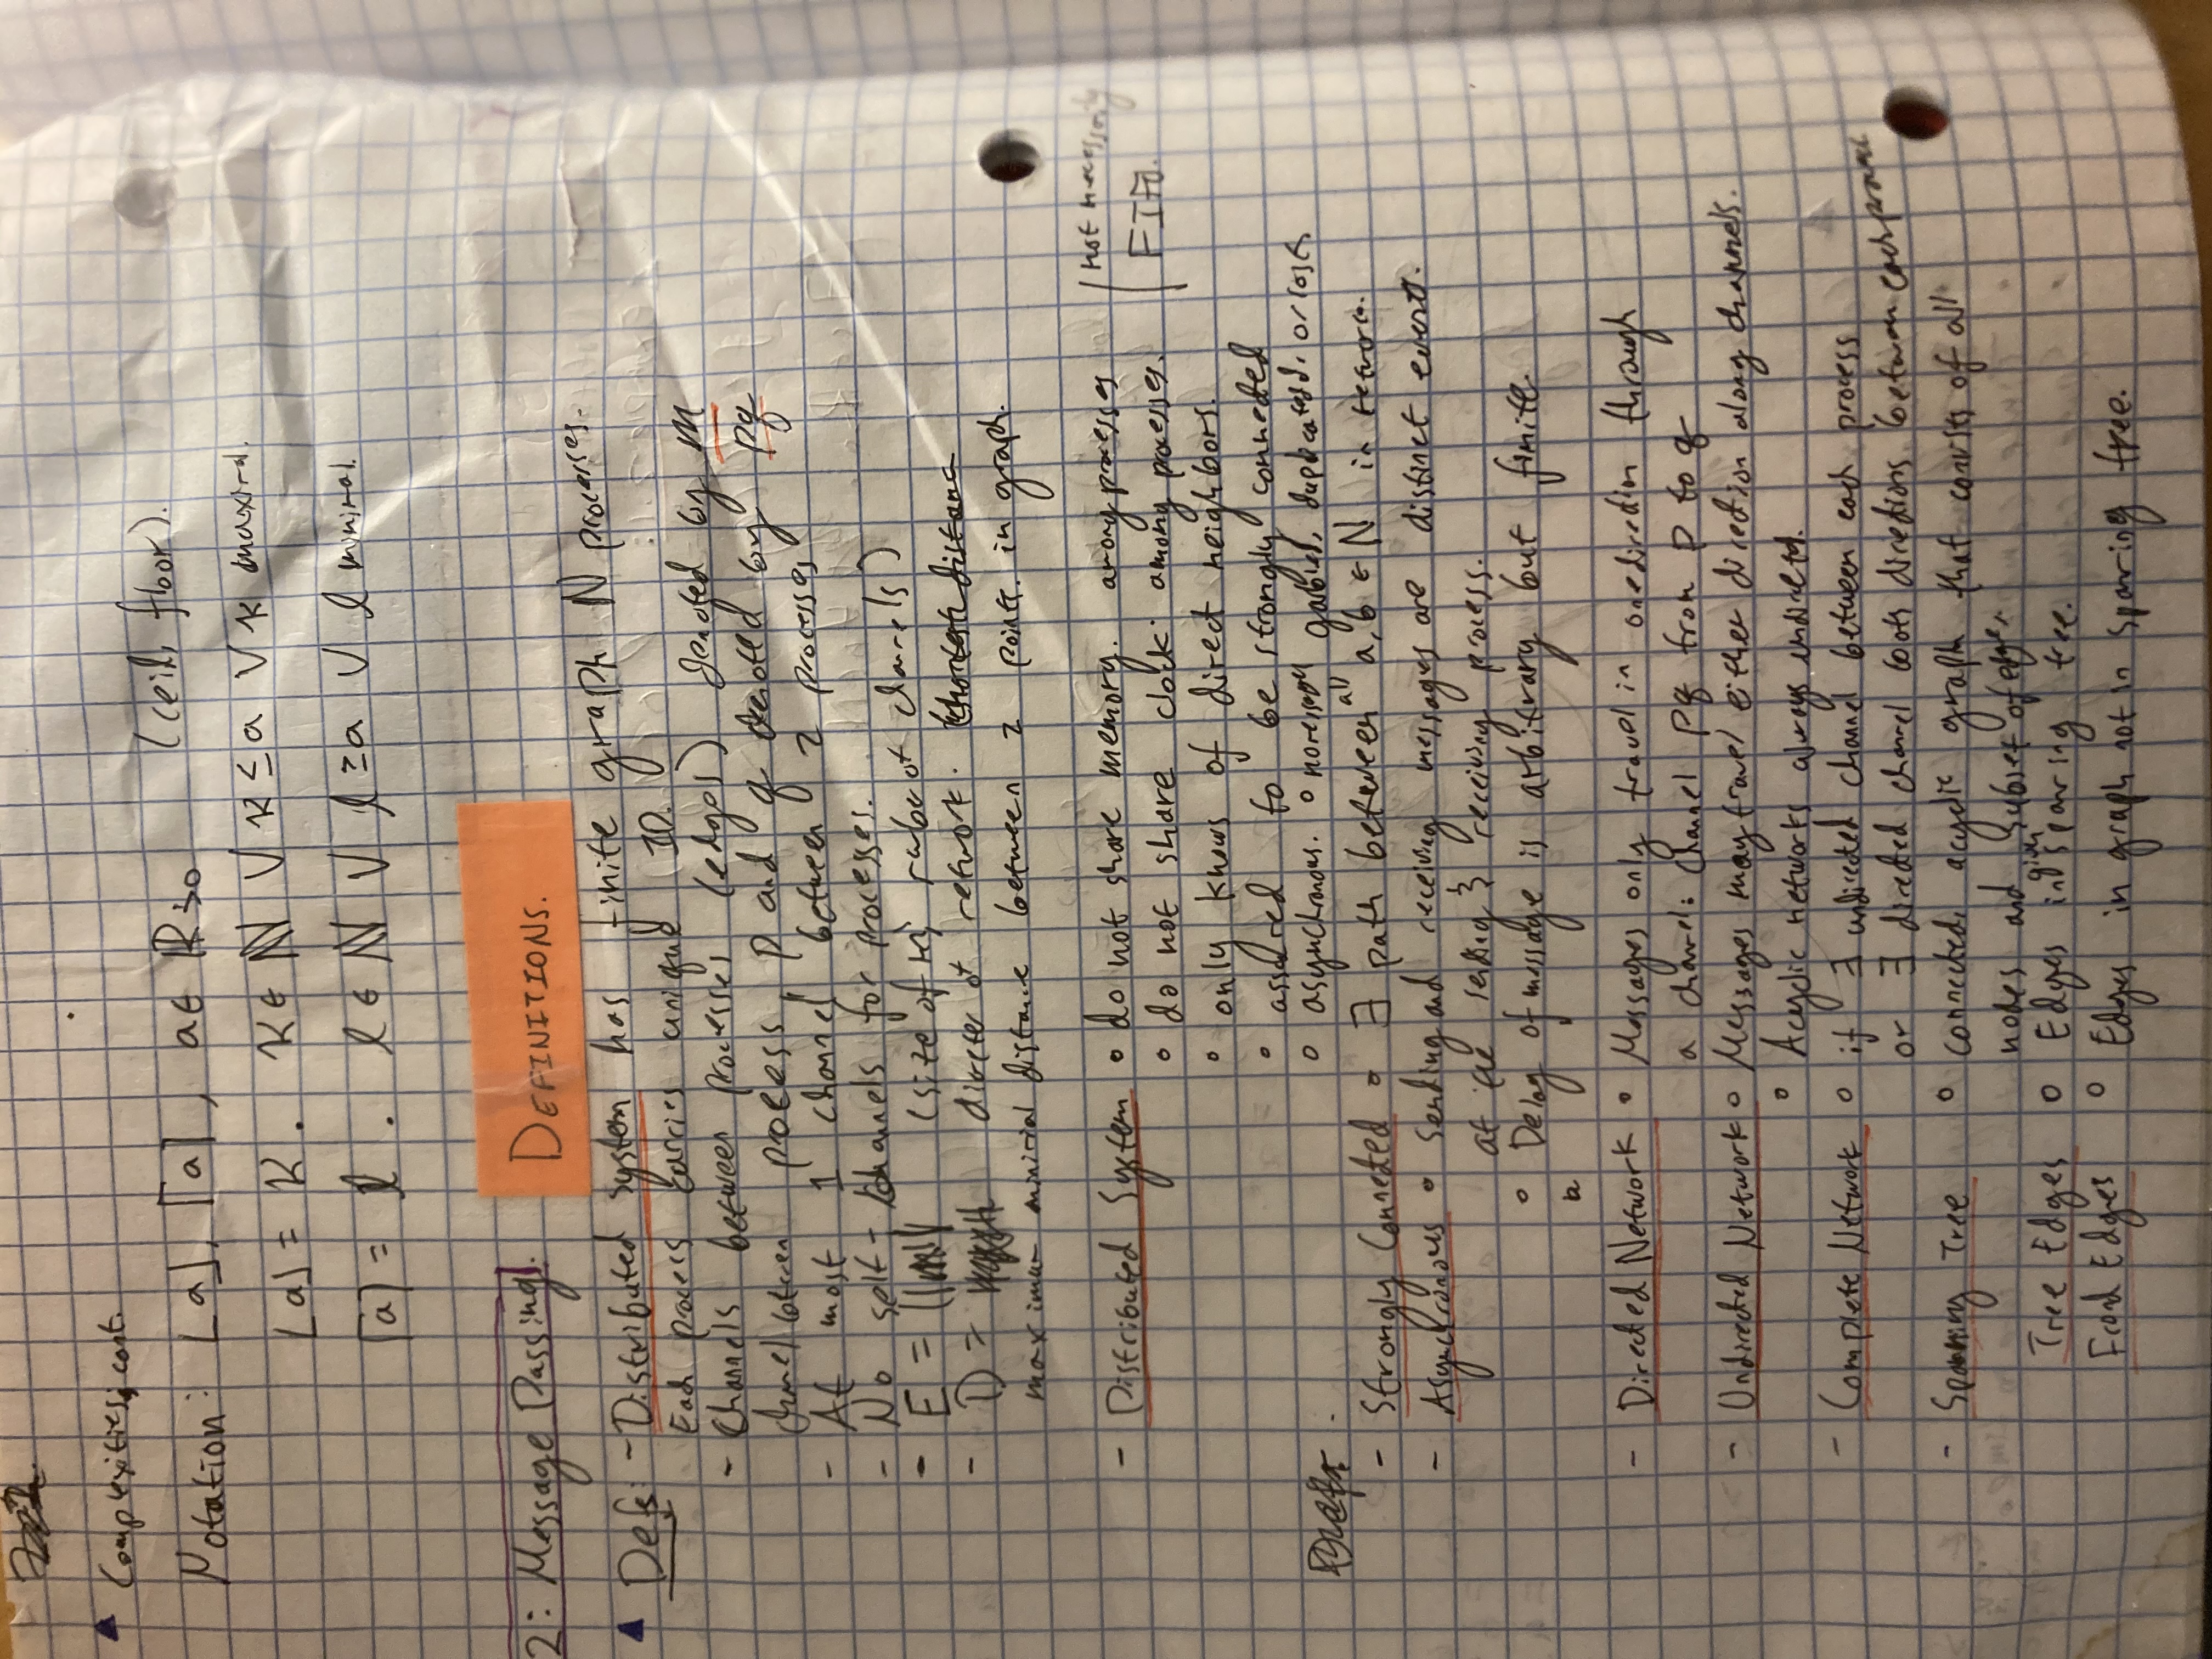 Complexities, cont.
Notation: ⌊a⌋, ⌈a⌉, a ∈ ℝ≥0 (ceil, floor).
⌊a⌋ = K. K ∈ ℕ ∨ K ≤ a ∨ K maximal.
⌈a⌉ = ℓ. ℓ ∈ ℕ ∨ ℓ ≥ a ∨ ℓ minimal.
2: Message Passing.
DEFINITIONS.
Defs: - Distributed System has finite graph N processes.
Each process carries unique ID.
- Channels between processes (edges) denoted by m
channel between process, p and q denoted by pq
- At most 1 channel between 2 processes
- No self-channels for processes.
- E = ||m|| (size of m; number of channels)
- D = diameter of network. shortest distance
maximum minimal distance between 2 points. in graph.
- Distributed System ∘ do not share memory. among processes
not necessarily
FIFO.
∘ do not share clock. among processes.
∘ only knows of direct neighbors.
∘ assumed to be strongly connected
∘ asynchronous. ∘ no messages garbled, duplicated, or lost.
Defs
- Strongly Connected ∘ ∃ path between all a, b ∈ N in network.
- Asynchronous ∘ Sending and receiving messages are distinct events.
at the sending & receiving process.
∘ Delay of message is arbitrary but finite.
- Directed Network ∘ Messages only travel in one direction through
a channel: Channel pq from p to q
- Undirected Network ∘ Messages may travel either direction along channels.
∘ Acyclic networks always undirected.
- Complete Network ∘ if ∃ undirected channel between each process
or ∃ directed channel both directions between each process
- Spanning Tree ∘ connected, acyclic graph that consists of all
nodes and subset of edges.
Tree Edges ∘ Edges in given spanning tree.
Frond Edges ∘ Edges in graph not in spanning tree.